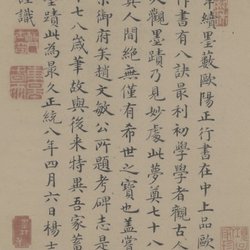 年續墨藪歐陽正行書在中上品歐
作書有八訣最利初學學者觀古人
人觀墨蹟乃見妙處此夢奠七十八
真人間絶無僅有希世之寶也蓋嘗
宗御府矣趙文敏公所題考碑志是
十七八歲筆故與後來特異吾家蓄
墨蹟此為最久正統八年四月六日楊士
謹識